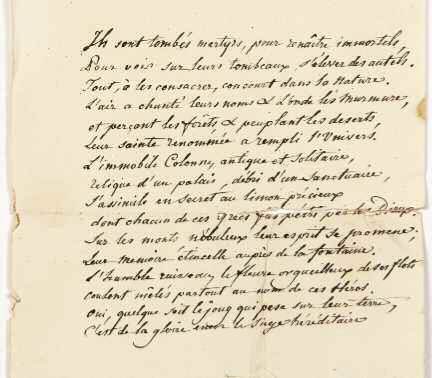 Ils sont tombés martyrs, pour renaître immortels,
Pour voir sur leurs tombeaux s'élever des autels.
Tout, à les consacrer, concourt dans la Nature.
L'air a chanté leurs noms & L'onde les murmure,
et perçant les forêts, & peuplant les deserts,
leur sainte renommée a rempli l'Univers.
L'immobile Colonne, antique et Solitaire,
relique d'un palais, débri d'un Sanctuaire,
S'assimile en secret au limon précieux
dont chacun de ces Grecs fut pétri par les Dieux.
Sur les monts nébuleux leur esprit se promene;
Leur memoire étincelle auprès de la fontaine.
L'humble ruisseau, le fleuve orgueilleux de ses flots
coulent mêlés partout au nom de ces Héros.
Oui, quelque soit le joug qui pese sur leur terre,
C'est de la gloire encor le Sage héréditaire